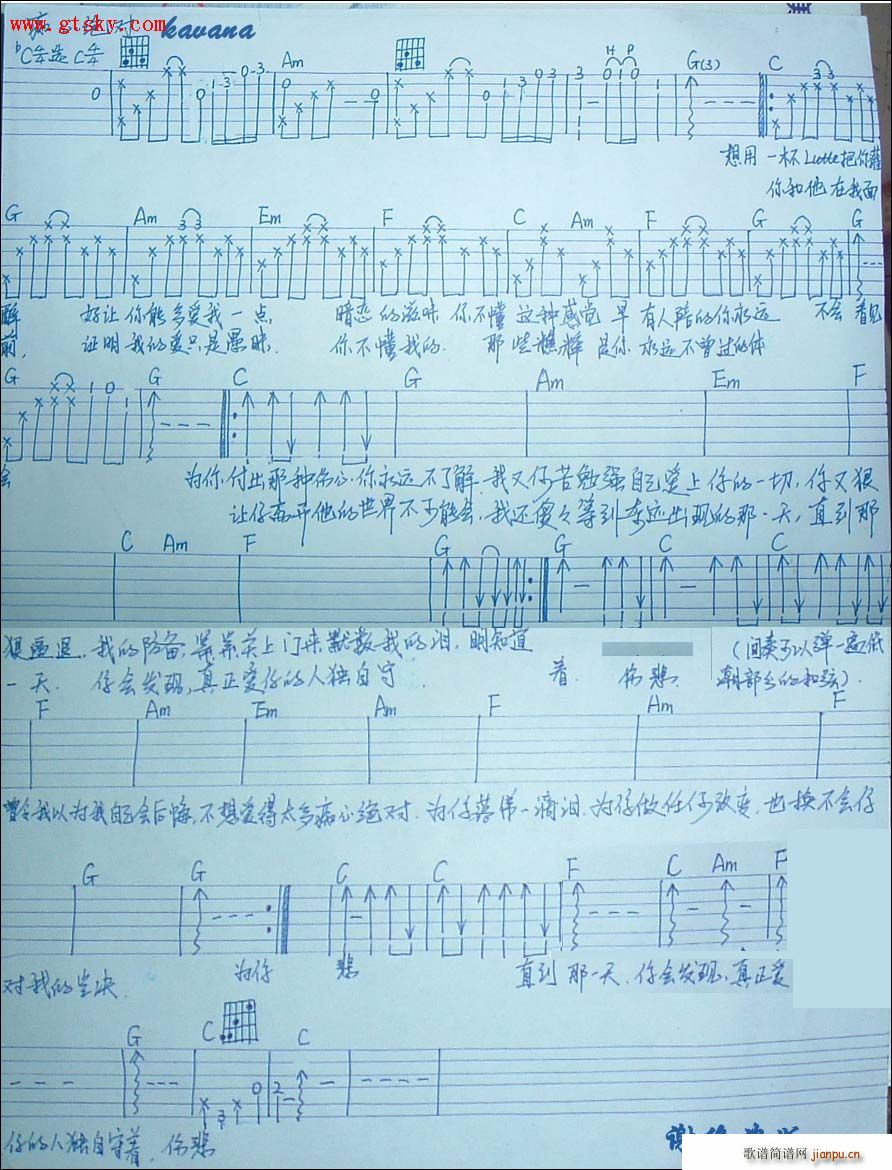 痴 绝对
www.gtsky.com
kavana
♭C半是C半
Am G(3) C
0 0 1-3 -0-3 0 0 0 1 3 0 3 3 H P 0 1 0 1 3 3
想用一杯Latte把你灌
你和他在我面
G Am Em F C Am F G G
3 3
醉 好让你能多爱我一点 暗恋的滋味 你不懂这种感觉 早有人陪的你永远 不会 看见
前, 证明我的爱只是愚昧. 你不懂我的. 那些憔悴 是你 永远不曾过的体
G G C G Am Em F
1 0 1
会 为你,付出那种伤心,你永远不了解.我又何苦勉强自己爱上你的一切,你又狠
让你离开他的世界不可能会.我还傻々等到奇迹出现的那一天,直到那
C Am F G G C C
狠逼退.我的防备,等 关上门来默数我的泪.明知道
一天. 你会发现,真正爱你的人独自守 着. 伤悲.
(间奏可以弹一遍低
潮部分的和弦).
F Am Em Am F Am F
我以为我自己会后悔,不想爱得太多痴心绝对.为你落第一滴泪.为你做任何改变.也换不会你
G G C C F C Am F
对我的坚决. 为你 悲 直到那一天.你会发现,真正爱
G C C
3 0 2
你的人独自守着.伤悲
歌谱简谱网
jianpu.cn